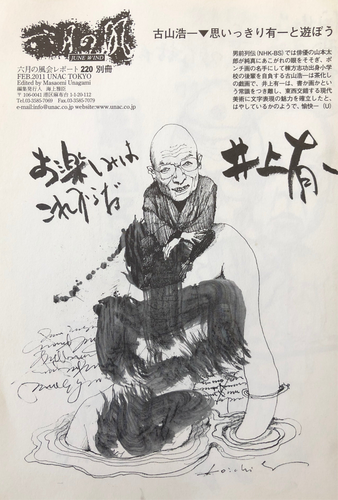 六月の風
JUNE WIND
六月の風会レポート 220 別冊
FEB.2011 UNAC TOKYO
Edited by Masaomi Unagami
編集発行人 海上雅臣
〒106-0041 港区麻布台1-1-20-112
Tel.03-3585-7069 Fax.03-3585-7079
e-mail:info@unac.co.jp website:www.unac.co.jp
古山浩一▼思いっきり有一と遊ぼう
男前列伝(NHK-BS)では俳優の山本太
郎が純真にあこがれの眼をそそぎ、ポ
ンチ画の名手にして棟方志功出身小学
校の後輩を自負する古山浩一は茶化し
の戯画で、井上有一は、書か画かとい
う常識をつき離し、東西交錯する現代
美術に文字表現の魅力を確立したと、
はやしているかのようで、愉快― (U)
お楽しみは
これからだ
井上有一